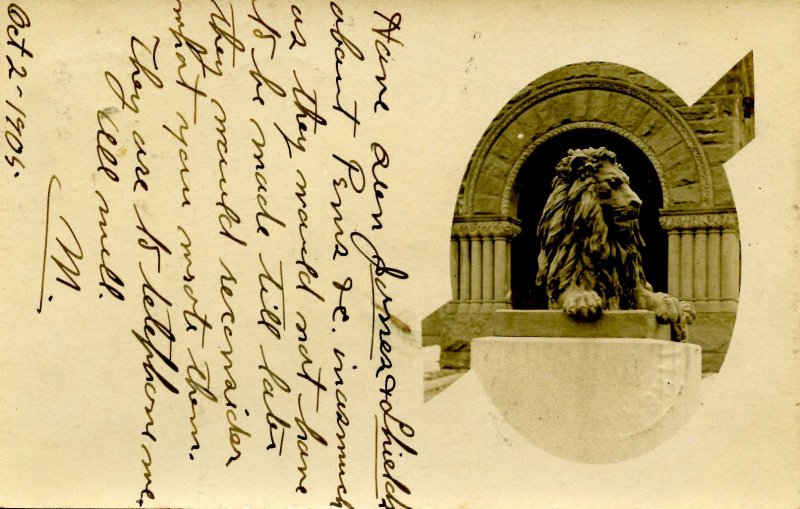 Have seen Jones & Shields
about Pems &c. inasmuch
as they would not have
to be made till later
they would reconsider
what you wrote them.
They are to telephone me.
All well.
M.
Oct 2 - 1905.